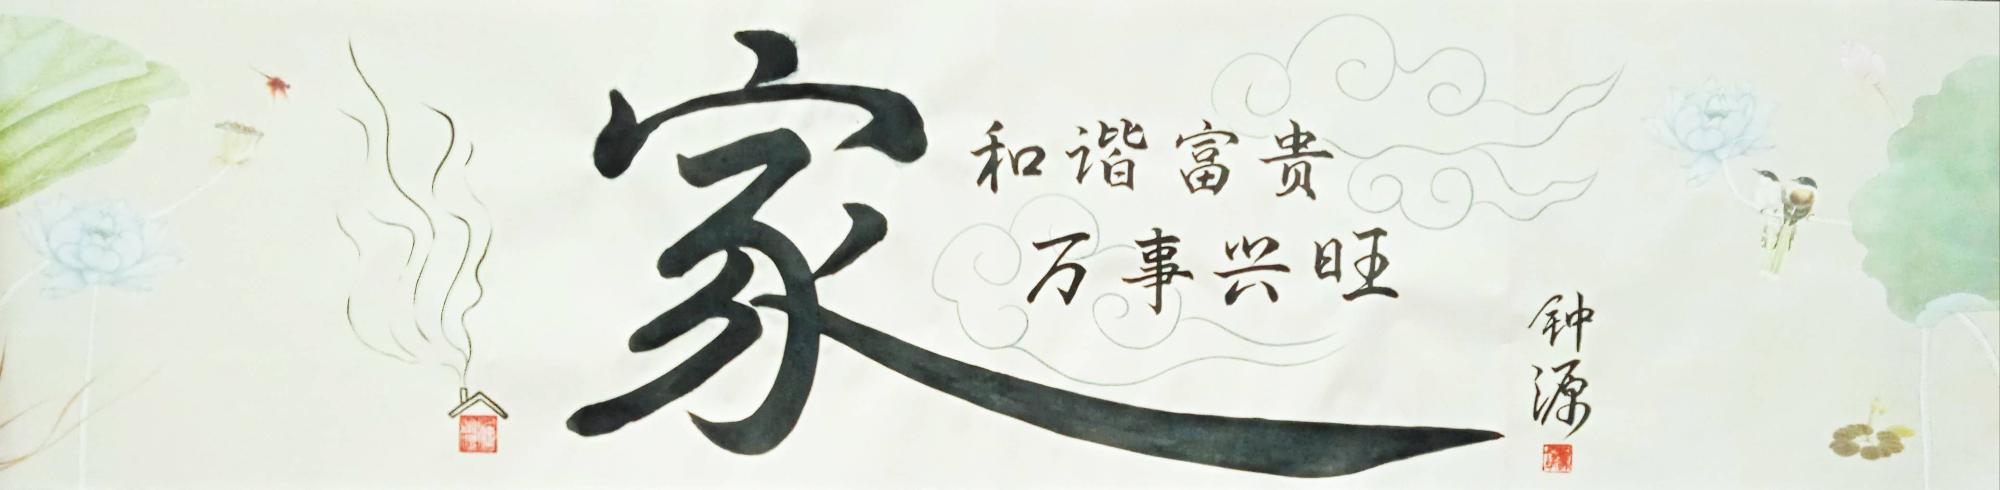 家
和谐富贵
万事兴旺
钟源